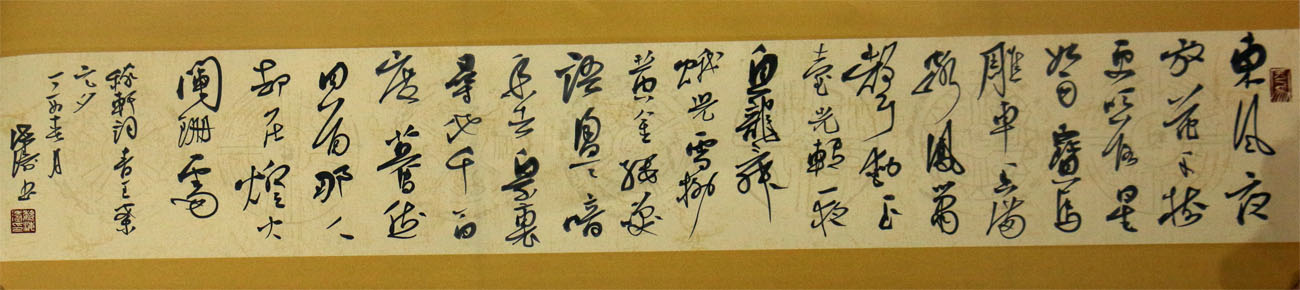 東風夜
放花千樹
更吹落星
如雨寶馬
雕車香滿
路鳳簫
聲動玉
壺光轉一夜
魚龍舞
蛾兒雪柳
黃金縷笑
語盈〻暗
香去衆裏
尋他千百
度驀然
回首那人
却在燈火
闌珊處
稼軒詞青玉案
元夕
丁酉春月
書